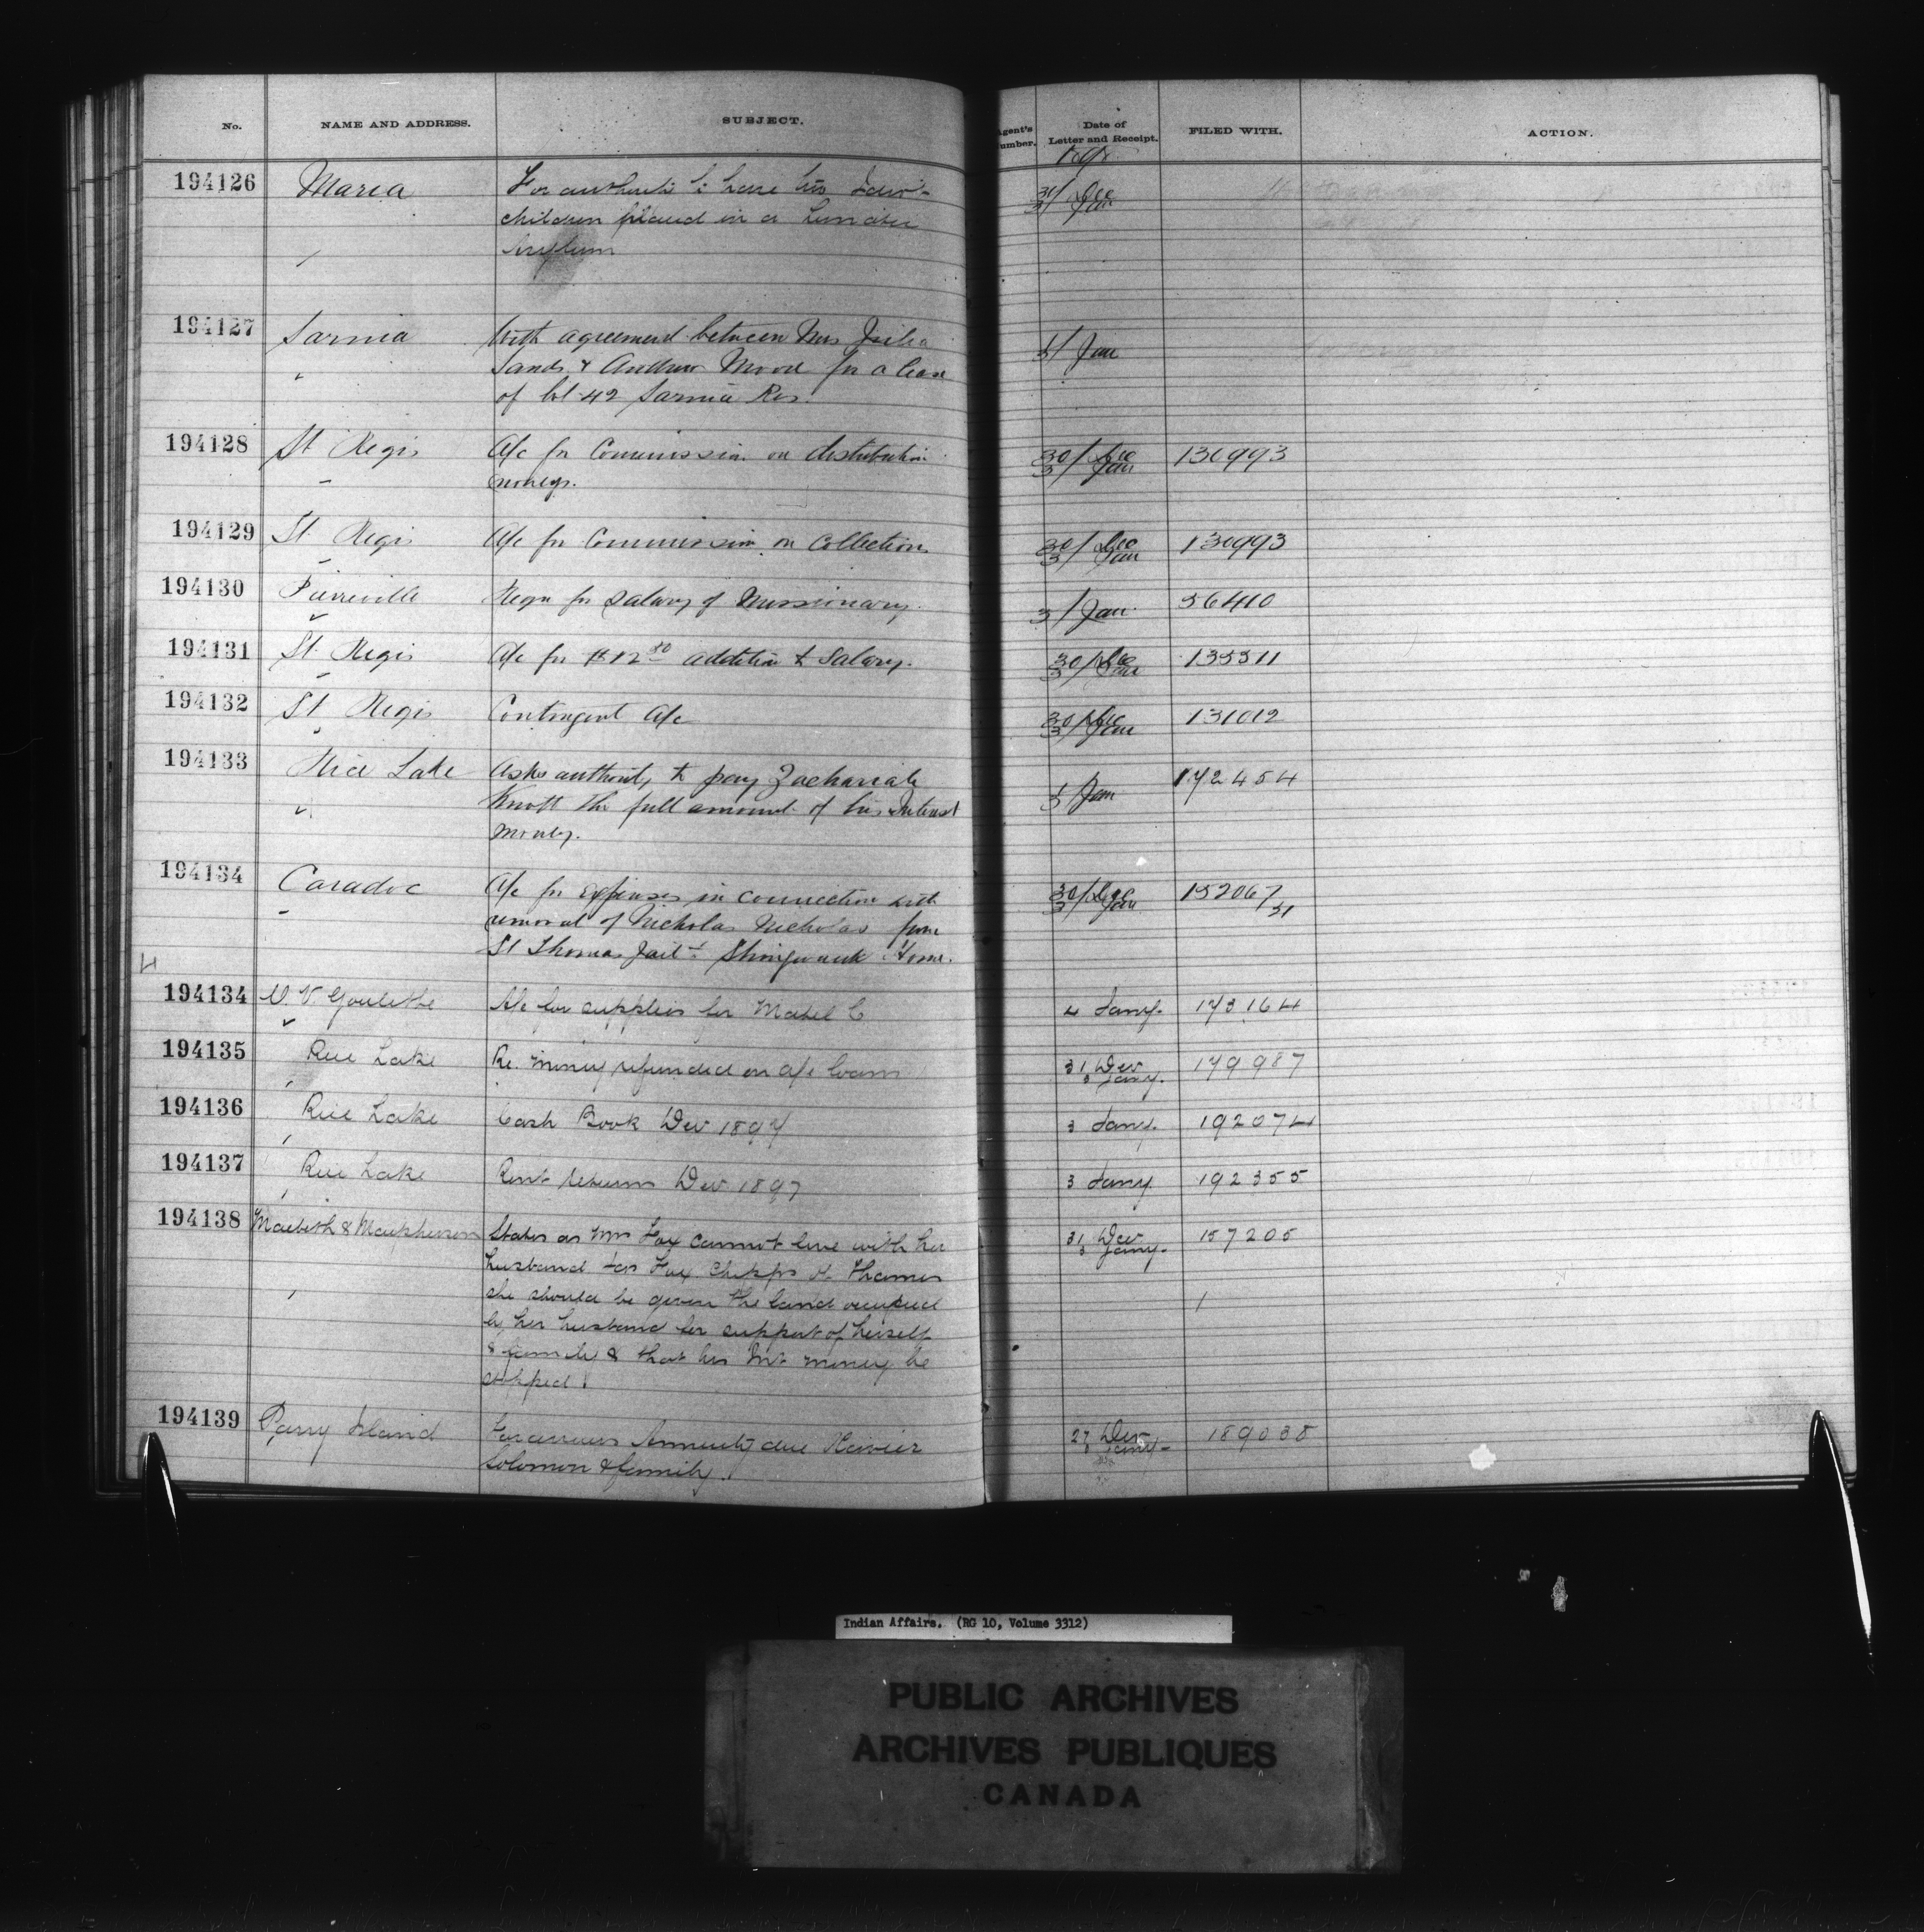 No. NAME AND ADDRESS. SUBJECT. Agent's Number. Date of Letter and Receipt. FILED WITH. ACTION.
194126 Maria For to have his
children placed in a Lunatic
Asylum
31/3 Dec Jan
194127 Sarnia With agreement between Mrs
Sands & Andrew for a lease
of lot 42 Sarnia Res.
3/ Jan
194128 St Regis A/c for Commission on distribution
moneys.
30/3 Dec Jan 130993
194129 St. Regis A/c for Commission on Collections
30/3 Dec Jan 130993
194130 Pierreville Reqn for Salary of Missionary.
3/ Jan 56410
194131 St. Regis A/c for $12 50 addition to Salary.
30/3 Dec Jan 135311
194132 St Regis Contingent A/c
30/3 Dec Jan 131012
194133 Rice Lake Asks authority to pay Zachariah
Knott the full amount of his Interest
money.
Jan 172454
194134 Caradoc A/c for expenses in connection with
removal of Nicholas Nicholas from
St Thomas Jail to Shingwauk Home.
30/3 Dec Jan 152067/31
194134 A/c for supplies for Mabel C
4 Jany. 173164
194135 Rice Lake Re. money refunded on a/c loans
31 Dec 3 Jany. 179987
194136 Rice Lake Cash Book Dec 1897
3 Jany. 192074
194137 Rice Lake Rent Returns Dec 1897
3 Jany 192355
194138 Macbeth & Macpherson States as Mrs Fox cannot live with her
husband Jas Fox Chipps of Thames
she should be given the land occupied
by her husband for support of herself
& family & that his Int money be
stopped
31 Dec 3 Jany. 157205
194139 Parry Island For arrears Annuity due Xavier
Solomon & family.
27 Dec 3 Jany 189038
Indian Affairs. (RG 10, Volume 3312)
PUBLIC ARCHIVES
ARCHIVES PUBLIQUES
CANADA